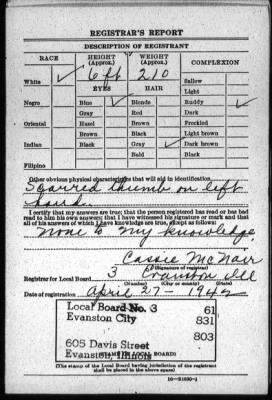 REGISTRAR'S REPORT
DESCRIPTION OF REGISTRANT
RACE HEIGHT (Approx.) WEIGHT (Approx.) COMPLEXION
White ✓ 6 ft 210 Sallow
EYES HAIR Light
Negro Blue ✓ Blonde Ruddy ✓
Gray Red Dark
Oriental Hazel Brown Freckled
Brown Black Light brown
Indian Black Gray ✓ Dark brown
Bald Black
Filipino
Other obvious physical characteristics that will aid in identification
Scarred thumb on left
hand.
I certify that my answers are true; that the person registered has read or has had
read to him his own answers; that I have witnessed his signature or mark and that
all of his answers of which I have knowledge are true, except as follows:
None to my knowledge
Cassie McNair
(Signature of registrar)
Registrar for Local Board 3 Evanston Ill
(Number) (City or county) (State)
Date of registration April 27 - 1942
Local Board No. 3 61
Evanston City 031
803
605 Davis Street
Evanston, Illinois
(STAMP OF LOCAL BOARD)
(The stamp of the Local Board having jurisdiction of the registrant
shall be placed in the above space)